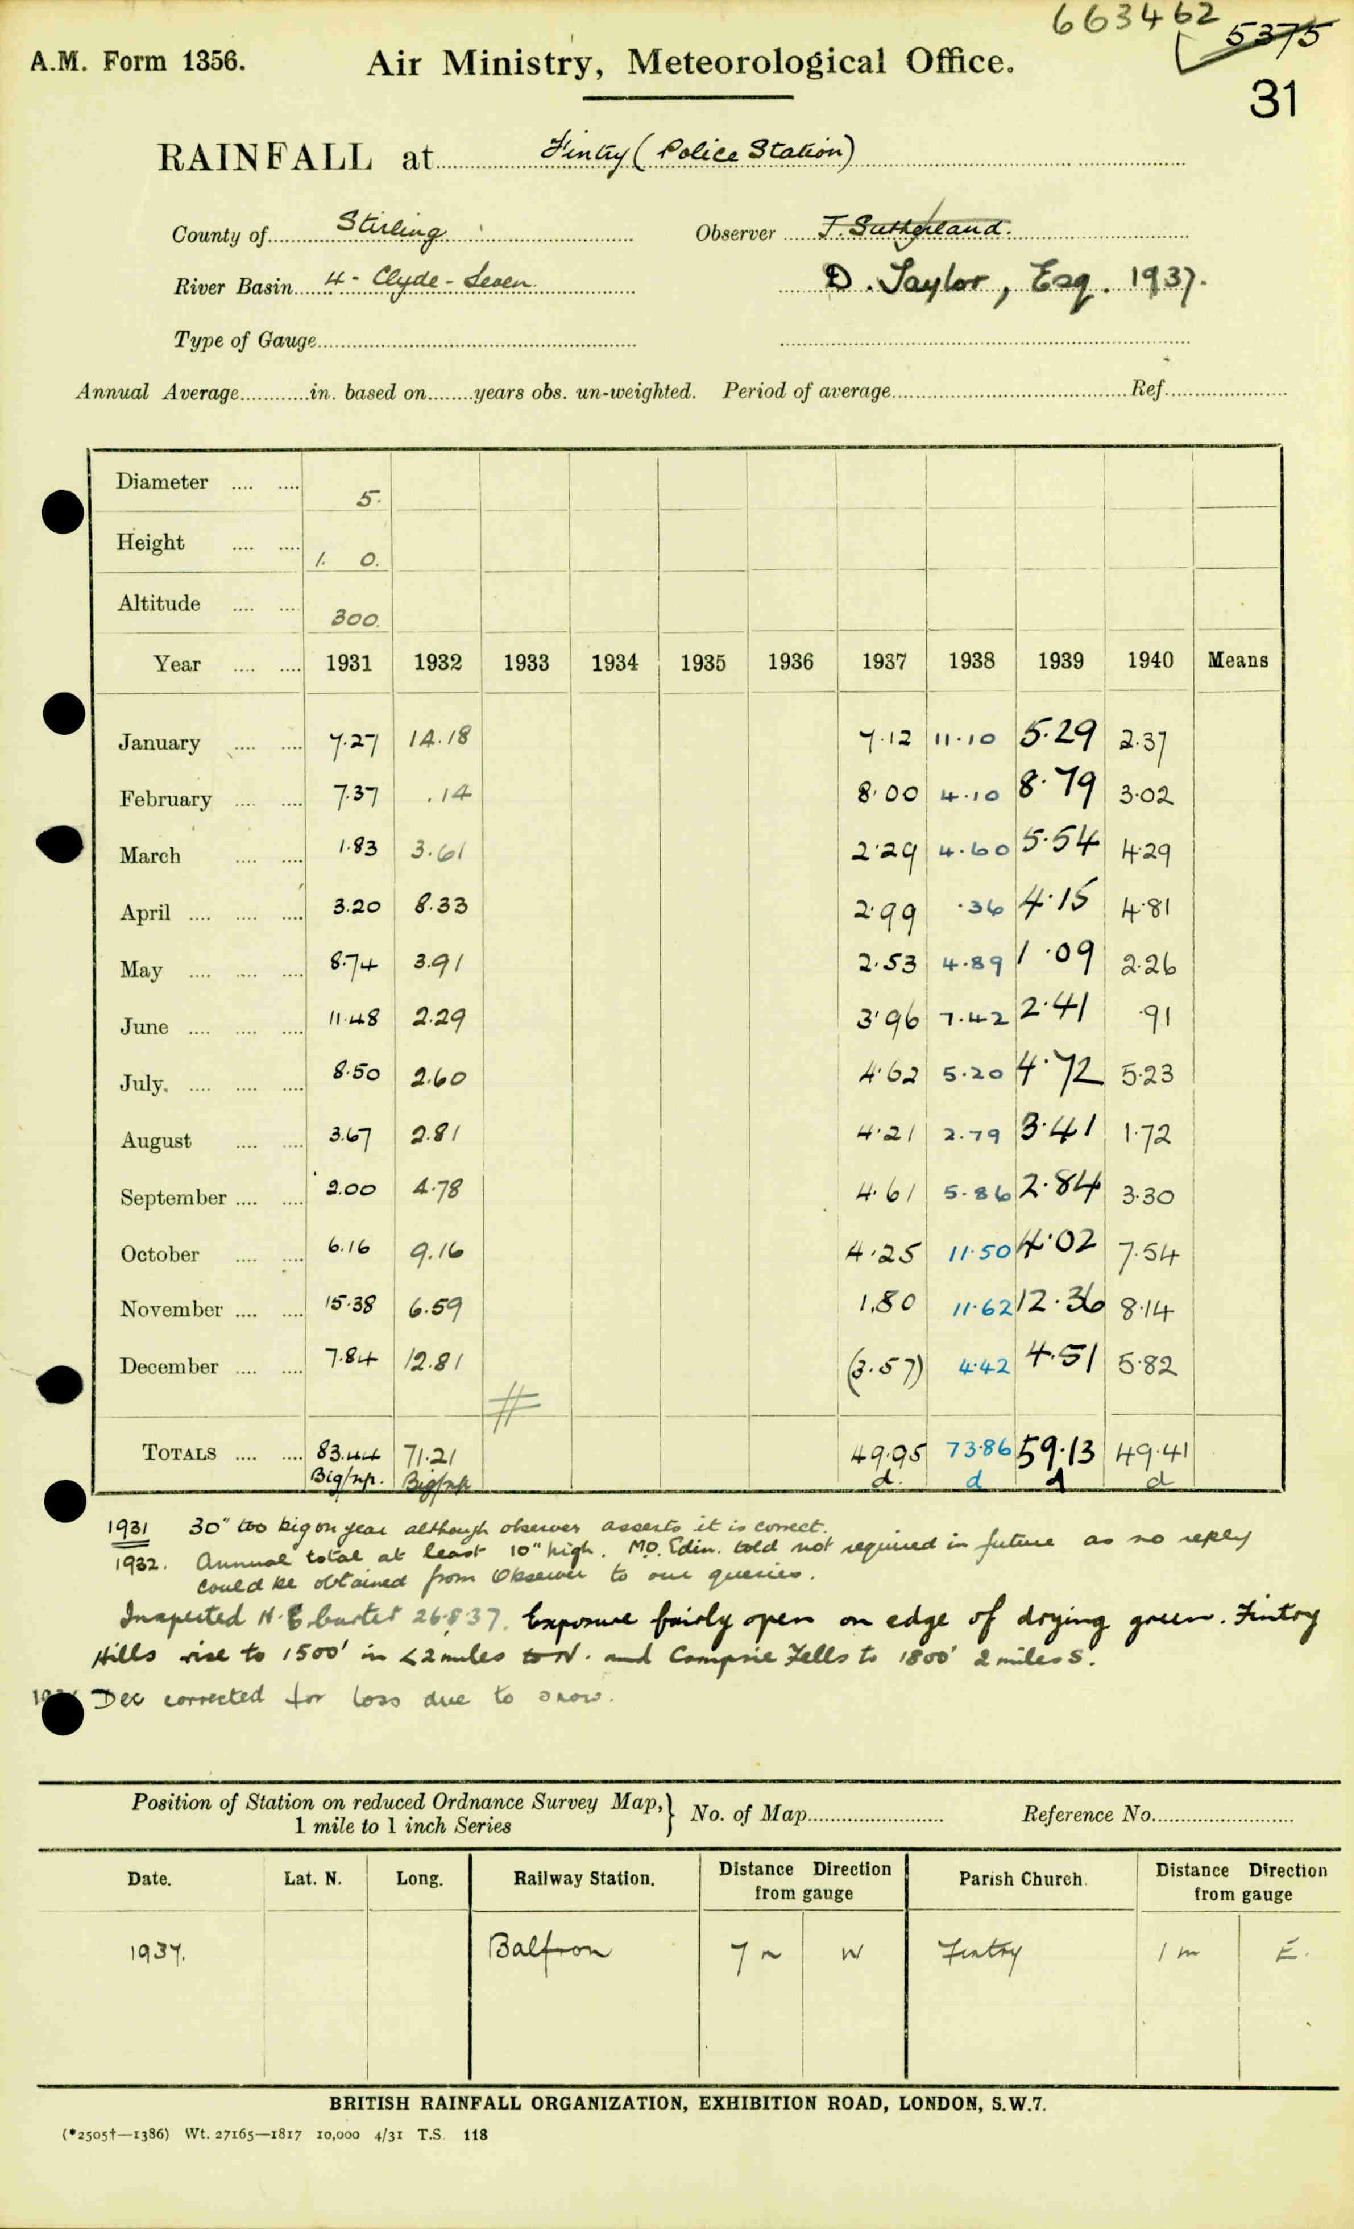 663462
5375
A.M. Form 1356. Air Ministry, Meteorological Office.
31
RAINFALL at Fintry (Police Station)
County of Stirling Observer J. Sutherland.
River Basin 4 - Clyde - Leven D. Taylor, Esq. 1937.
Type of Gauge
Annual Average in. based on years obs. un-weighted. Period of average Ref.
Diameter 5.
Height 1. 0.
Altitude 300.
Year 1931 1932 1933 1934 1935 1936 1937 1938 1939 1940 Means
January 7.27 14.18 7.12 11.10 5.29 2.37
February 7.37 .14 8.00 4.10 8.79 3.02
March 1.83 3.61 2.29 4.60 5.54 4.29
April 3.20 8.33 2.99 .36 4.15 4.81
May 8.74 3.91 2.53 4.89 1.09 2.26
June 11.48 2.29 3.96 7.42 2.41 .91
July. 8.50 2.60 4.62 5.20 4.72 5.23
August 3.67 2.81 4.21 2.79 3.41 1.72
September 2.00 4.78 4.61 5.86 2.84 3.30
October 6.16 9.16 4.25 11.50 4.02 7.54
November 15.38 6.59 1.80 11.62 12.36 8.14
December 7.84 12.81 (3.57) 4.42 4.51 5.82
#
TOTALS 83.44 71.21 49.95 73.86 59.13 49.41
Big/np. Big/np d. d d d
1931 30" too big on year although observer asserts it is correct.
1932. Annual total at least 10" high. M.O. Edin. told not required in future as no reply
could be obtained from Observer to our queries.
Inspected H. E. Carter 26.8.37. Exposure fairly open on edge of drying green. Fintry
Hills rise to 1500' in <2 miles to N. and Campsie Fells to 1800' 2 miles S.
Dec corrected for loss due to snow.
Position of Station on reduced Ordnance Survey Map, } No. of Map Reference No.
1 mile to 1 inch Series
Date. Lat. N. Long. Railway Station. Distance Direction from gauge Parish Church. Distance Direction from gauge
1937. Balfron 7 m W Fintry 1 m E.
BRITISH RAINFALL ORGANIZATION, EXHIBITION ROAD, LONDON, S.W.7.
(*2505†—1386) Wt. 27165—1817 10,000 4/31 T.S. 118